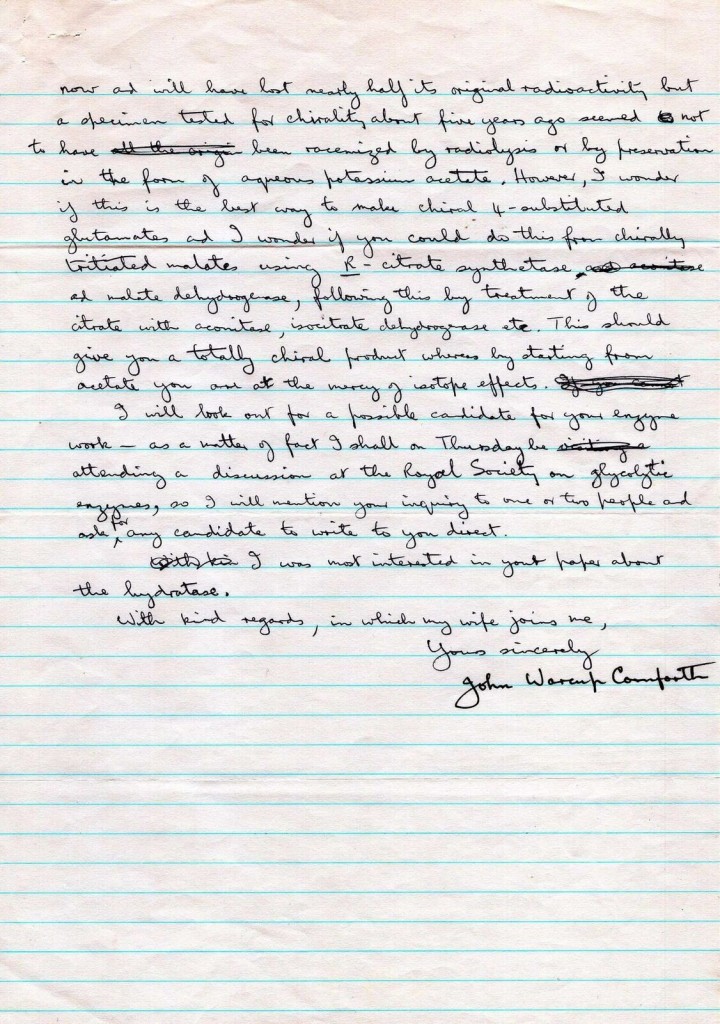 now ad will have lost nearly half its original radioactivity but
a specimen tested for chirality about five years ago seemed not
to have all the origin been racemized by radiolysis or by preservation
in the form of aqueous potassium acetate. However, I wonder
if this is the best way to make chiral 4-substituted
glutamates ad I wonder if you could do this from chirally
tritiated malates using R-citrate synthetase, and aconitase
ad malate dehydrogenase, following this by treatment of the
citrate with aconitase, isocitrate dehydrogenase etc. This should
give you a totally chiral product whereas by starting from
acetate you are at the mercy of isotope effects. If you cannot
I will look out for a possible candidate for your enzyme
work — as a matter of fact I shall on Thursday be visiting a
attending a discussion at the Royal Society on glycolytic
enzymes, so I will mention your inquiry to one or two people ad
ask for any candidate to write to you direct.
I was most interested in your paper about
the hydratase.
With kind regards, in which my wife joins me,
Yours sincerely
John Warcup Cornforth